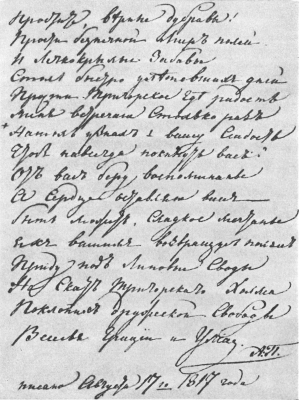 Простите, верные дубравы!
Прости, беспечный мир полей
И легкокрылые забавы
Столь быстро улетевших дней
Прости Тригорское где радость
Меня встречала столько раз
На то ль узнал я вашу сладость
Чтоб навсегда покинуть вас?
От вас беру воспоминанье
А сердце оставляю вам
Быть может, сладкое мечтанье
я к вашим возвращусь полям
Приду под липовые своды
На скат Тригорского холма
Поклонник дружеской свободы
Веселья Граций и Ума.
А.П.
писано Августа 17го 1817 года